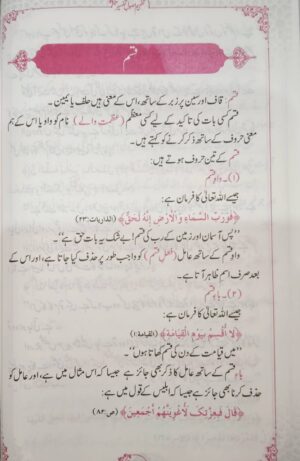 قسم
قسم: قاف اور سین پر زبر کے ساتھ، اس کے معنی ہیں حلف یا یمین۔
قسم کسی بات کی تاکید کے لیے کسی معظم (عظمت والے) نام کو واو یا اس کے ہم
معنی حروف کے ساتھ ذکر کرنے کو کہتے ہیں۔
قسم کے تین حروف ہوتے ہیں:
(۱)۔ واو قسم
جیسے اللہ تعالیٰ کا فرمان ہے:
﴿فَوَرَبِّ السَّمَاءِ وَالْأَرْضِ إِنَّهُ لَحَقٌّ﴾ (الذاریات: ۲۳)
”پس آسمان اور زمین کے رب کی قسم! بے شک یہ بات حق ہے“۔
واو قسم کے ساتھ عامل (فعل قسم) کو واجب طور پر حذف کیا جاتا ہے، اور اس کے
بعد صرف اسم ظاہر آتا ہے۔
(۲)۔ باء قسم
جیسے اللہ تعالیٰ کا فرمان ہے:
﴿لَا أُقْسِمُ بِيَوْمِ الْقِيَامَةِ﴾ (القیامۃ: ۱)
”میں قیامت کے دن کی قسم کھاتا ہوں“۔
باء قسم کے ساتھ عامل کا ذکر بھی جائز ہے جیسا کہ اس مثال میں ہے، اور عامل کو
حذف کرنا بھی جائز ہے جیسا کہ ابلیس کے قول میں ہے:
﴿قَالَ فَبِعِزَّتِكَ لَأُغْوِيَنَّهُمْ أَجْمَعِينَ﴾ (ص: ۸۲)